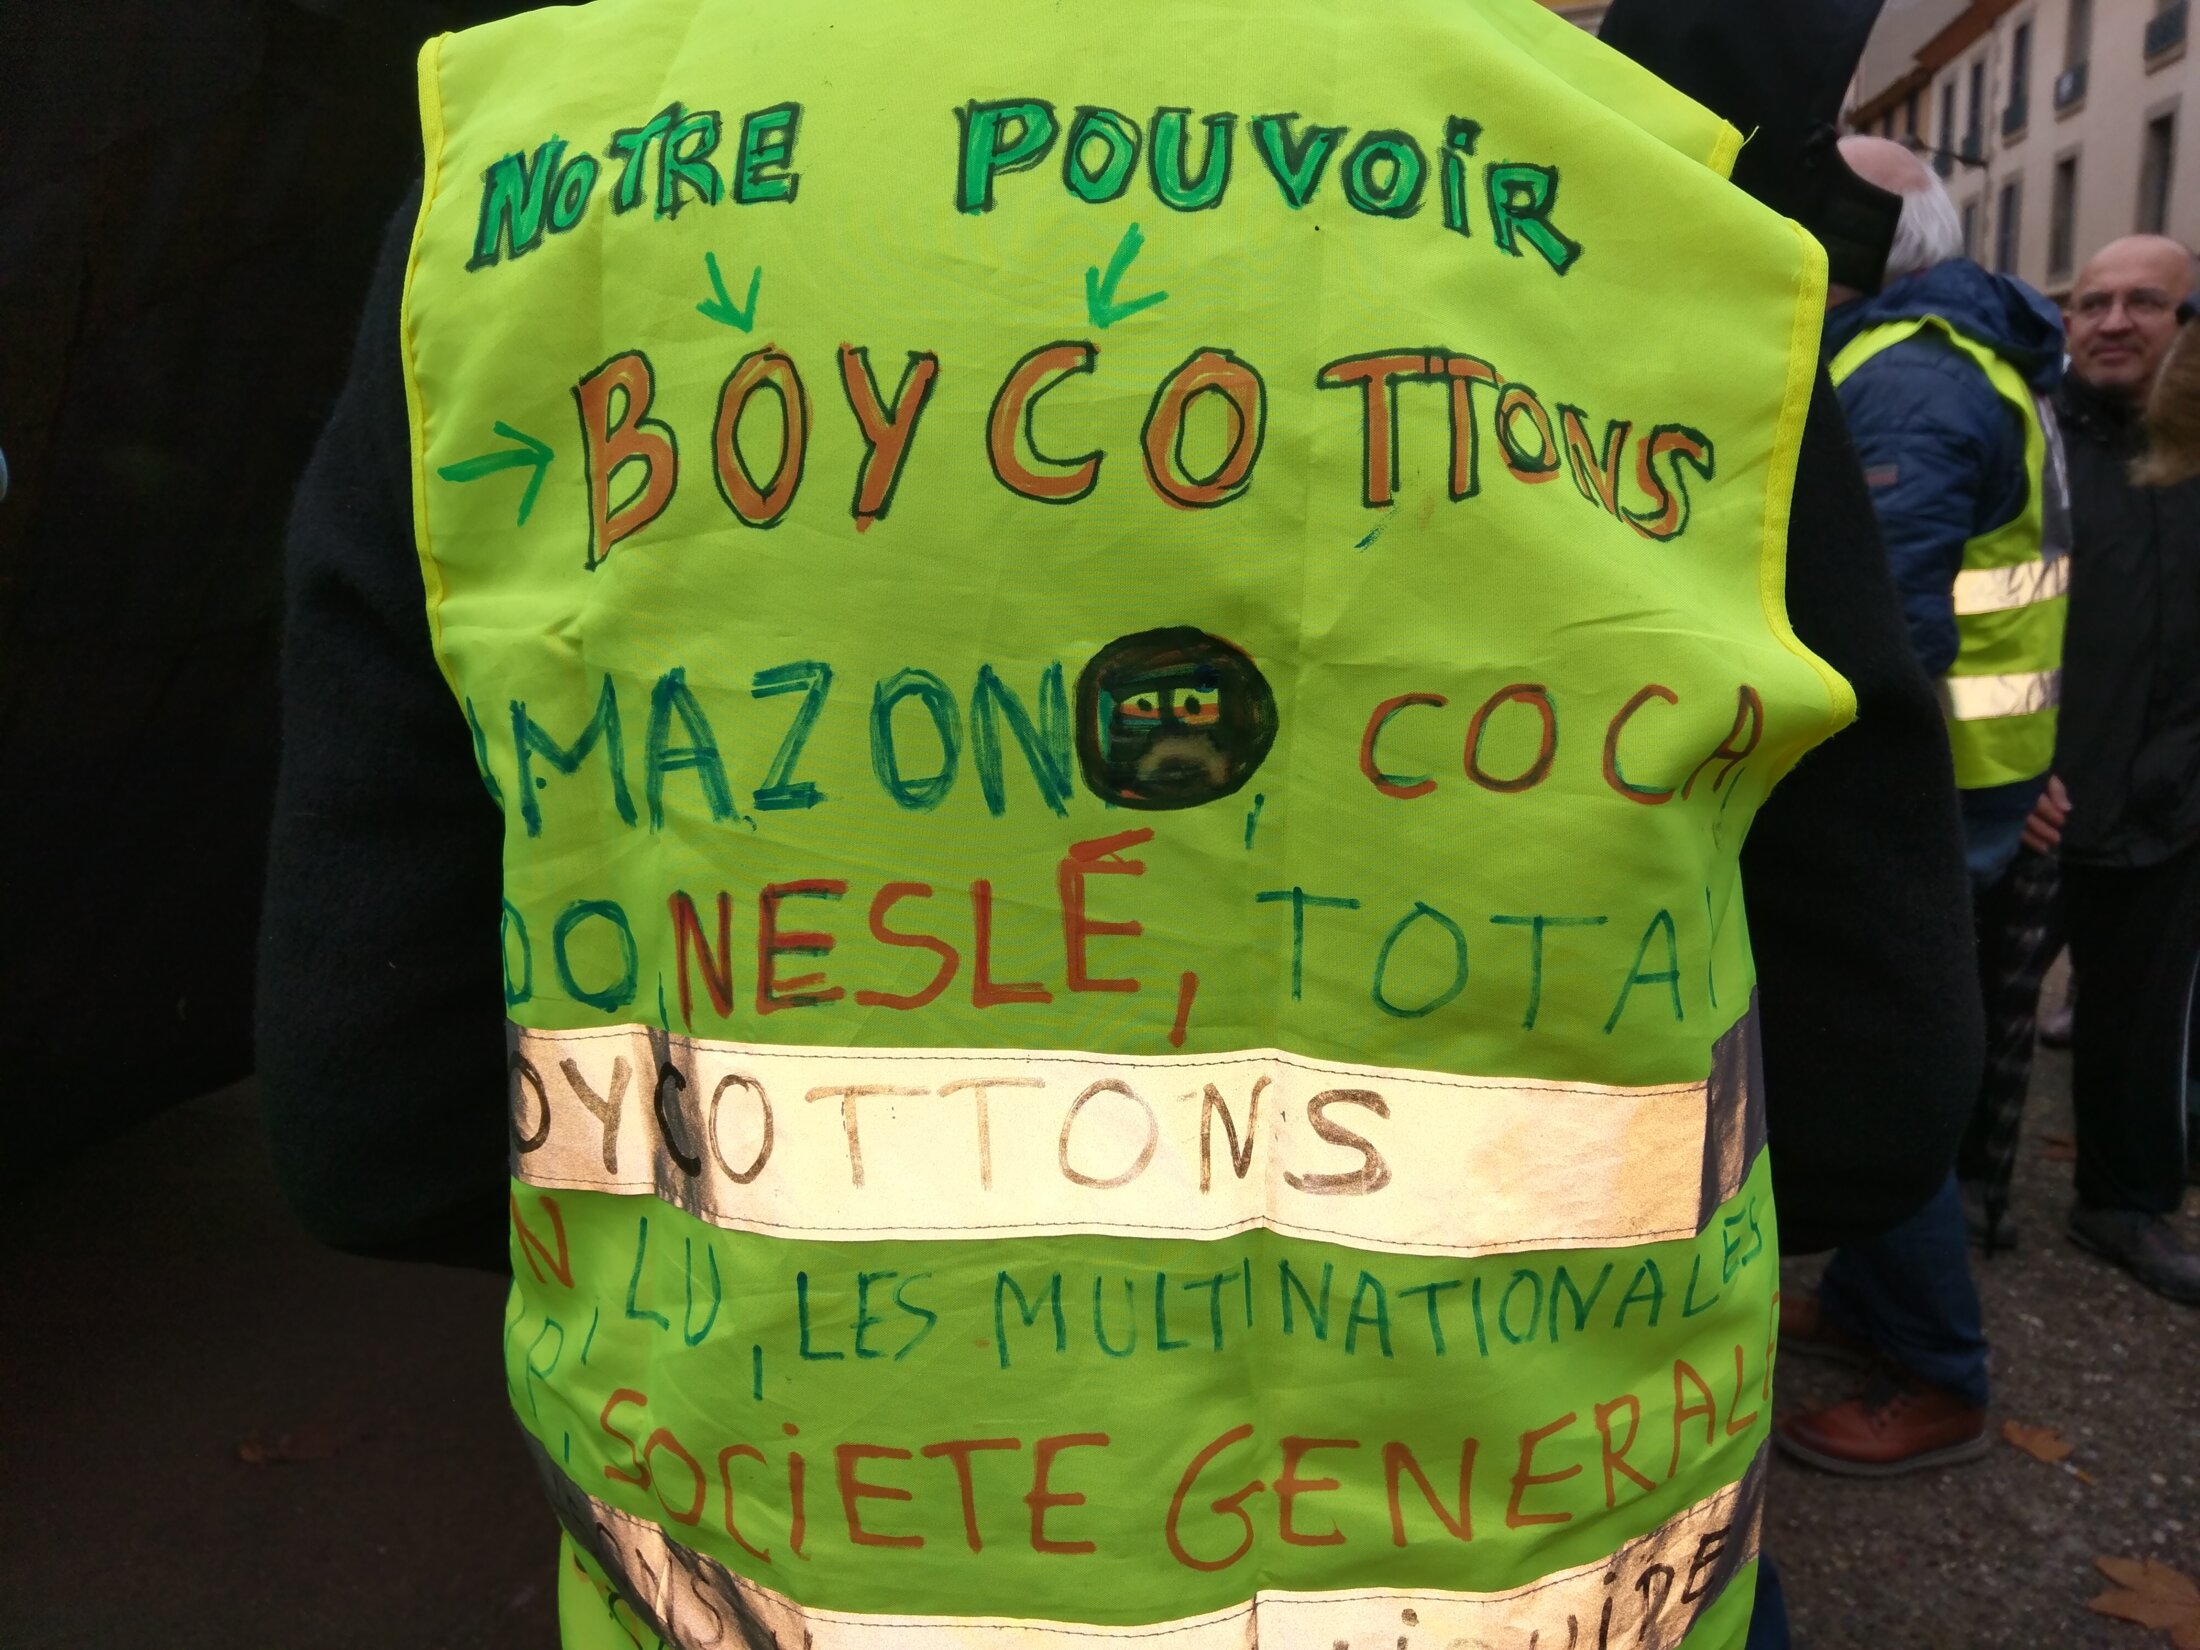 NOTRE POUVOIR
BOYCOTTONS
AMAZON, COCA
DO, NESLÉ, TOTAL
OYCOTTONS
N LU, LES MULTINATIONALES
SOCIETE GENERALE